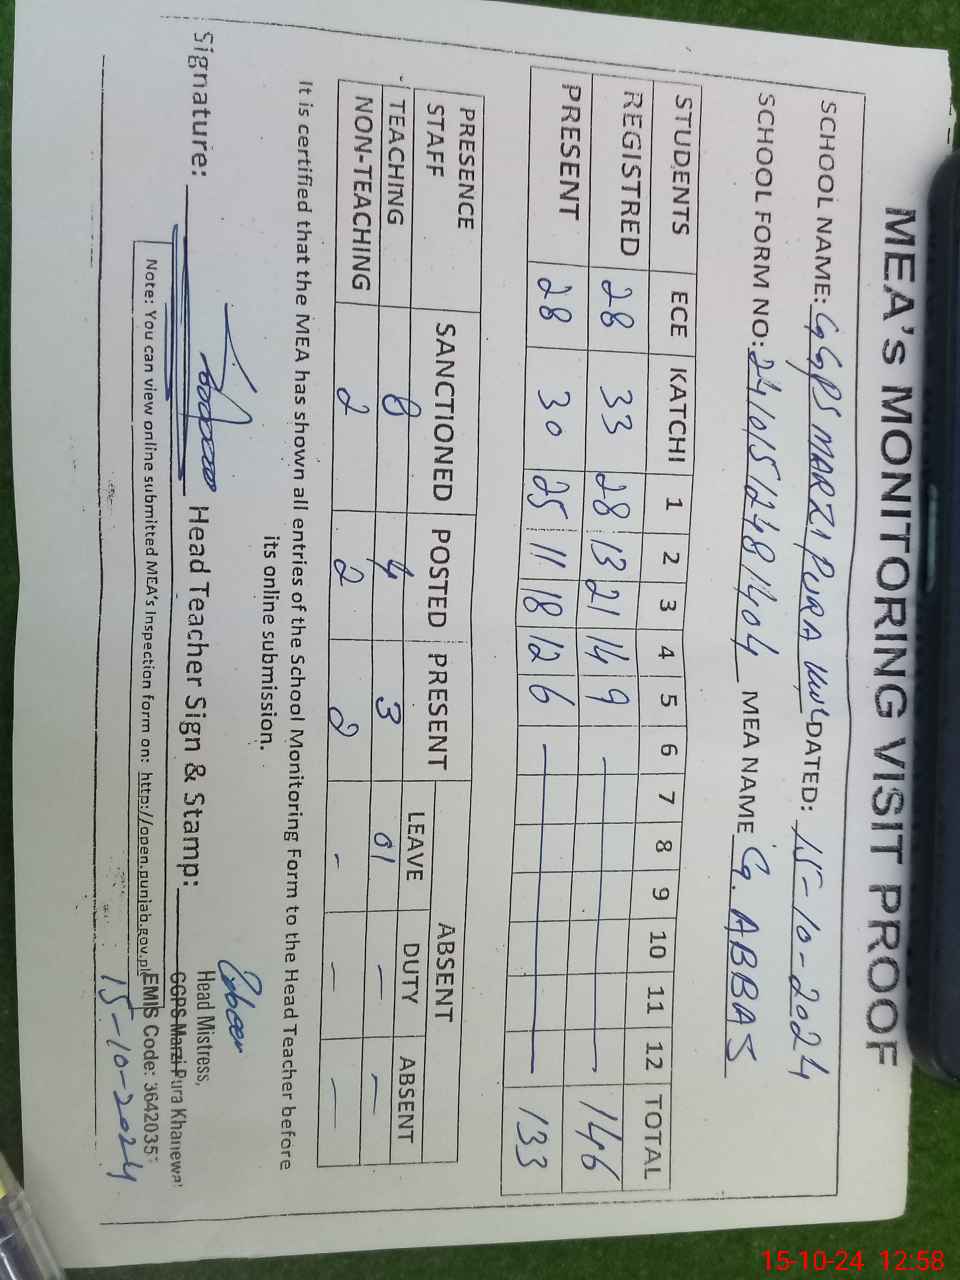 MEA's MONITORING VISIT PROOF
SCHOOL NAME: GGPS MARZI PURA KWL DATED: 15-10-2024
SCHOOL FORM NO: 24101512481404 MEA NAME G. ABBAS
STUDENTS ECE KATCHI 1 2 3 4 5 6 7 8 9 10 11 12 TOTAL
REGISTRED 28 33 28 13 21 14 9 — 146
PRESENT 28 30 25 11 18 12 6 — 133
PRESENCE STAFF SANCTIONED POSTED PRESENT ABSENT
LEAVE DUTY ABSENT
TEACHING 8 4 3 01 — —
NON-TEACHING 2 2 2 - — —
It is certified that the MEA has shown all entries of the School Monitoring Form to the Head Teacher before
its online submission.
Signature: Head Teacher Sign & Stamp:
Head Mistress,
GGPS Marzi Pura Khanewal
Note: You can view online submitted MEA's Inspection form on: http://open.punjab.gov.pk
EMIS Code: 3642035
15-10-2024
15-10-24 12:58